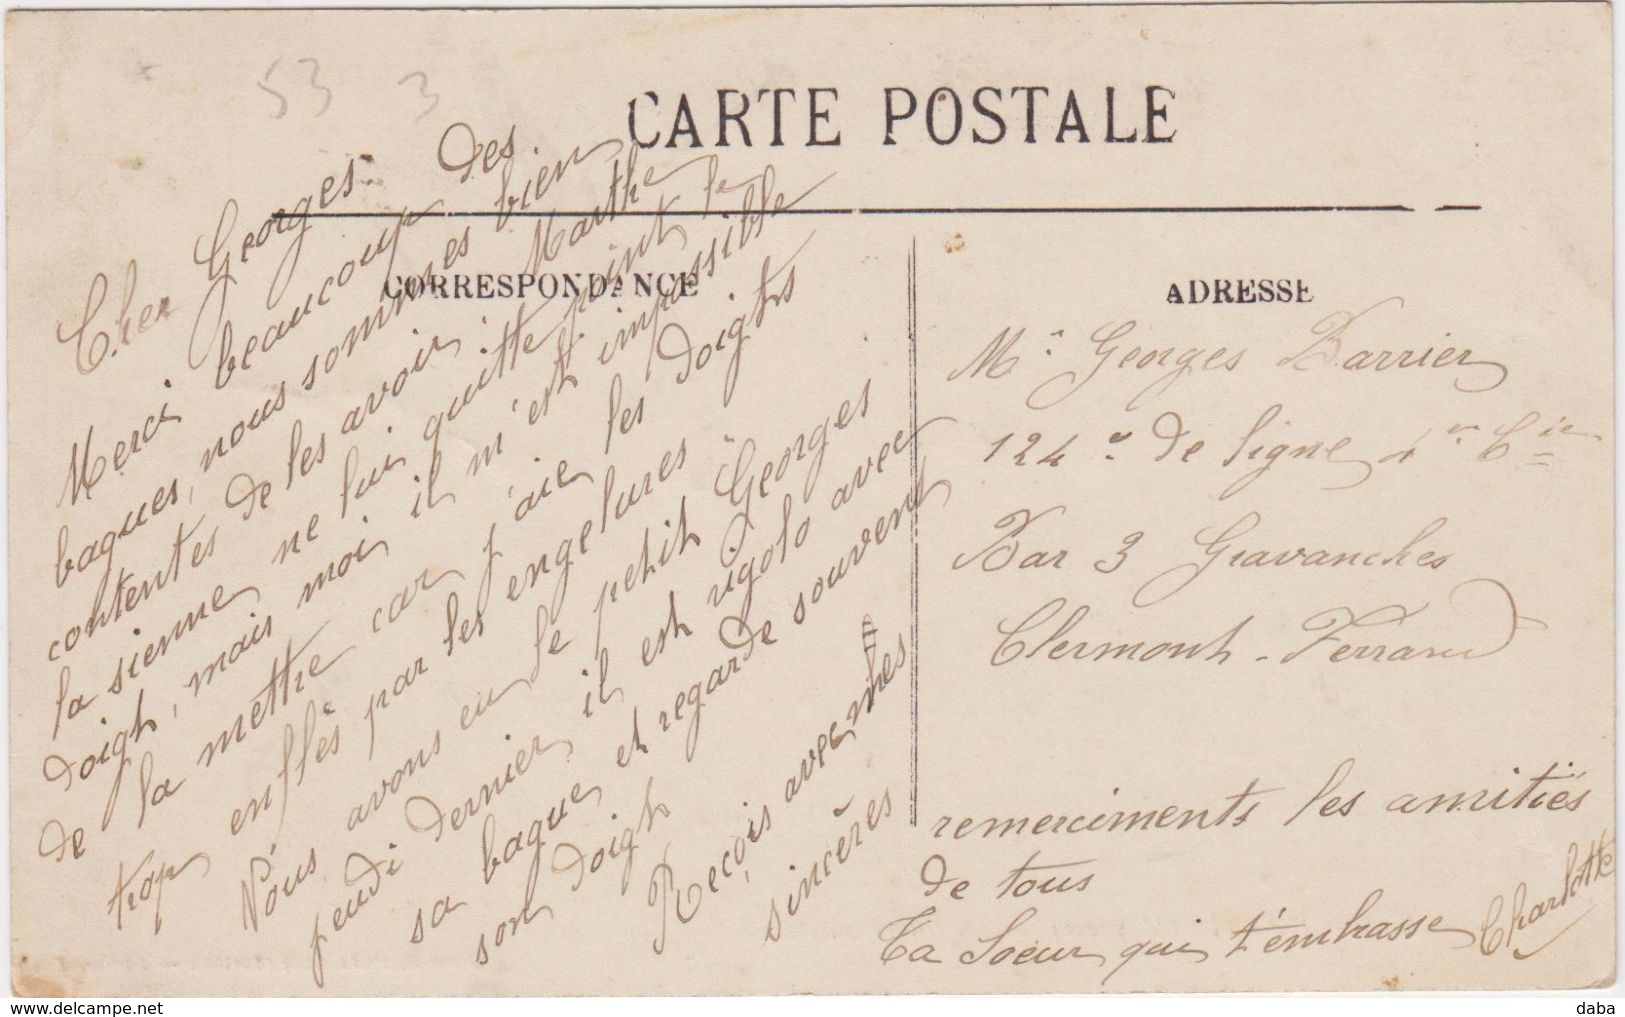 53 3
CARTE POSTALE
CORRESPONDANCE
ADRESSE
Cher Georges
Merci beaucoup des
bagues, nous sommes bien
contentes de les avoir. Marthe
la sienne ne lui quitte point le
doigt, mais moi il m'est impossible
de la mettre car j'aie les doigts
trop enflés par les engelures
Nous avons eu le petit Georges
jeudi dernier il est rigolo avec
sa bague et regarde souvent
son doigt
Reçois avec mes
sincères
remerciments les amitiés
de tous
Ta Soeur qui t'embrasse Charlotte
Mr Georges Barrier
124e de ligne 1re Cie
Bar 3 Gravanches
Clermont-Ferrand
www.delcampe.net
daba